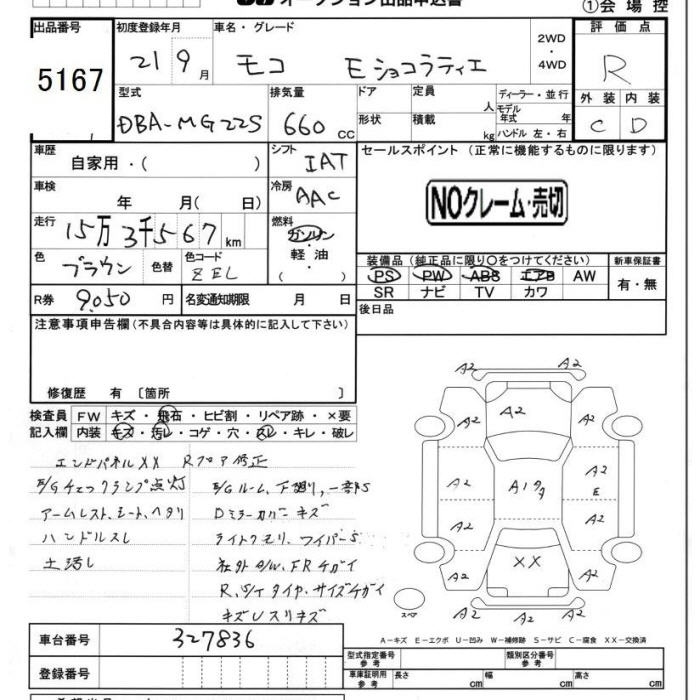 オークション出品申込書 ①会場控
出品番号 初度登録年月 車名・グレード 評価点
5167 21 9月 モコ Eショコラティエ 2WD・4WD R
型式 排気量 ドア 定員 ディーラー・並行 外装 内装
DBA-MG22S 660cc 人 モデル年式 年 C D
形状 積載 kg ハンドル 左・右
車歴 自家用・( ) シフト IAT セールスポイント (正常に機能するものに限ります)
車検 年 月( 日) 冷房 AAC
NOクレーム・売切
走行 15万3千567km 燃料 ガソリン・軽油・( )
色 ブラウン 色替 色コード ZEL
装備品 (純正品に限り〇をつけてください) 新車保証書
PS PW ABS エアB AW 有・無
SR ナビ TV カワ
R券 9,050円 名変通知期限 月 日 後日品
注意事項申告欄(不具合内容等は具体的に記入して下さい)
修復歴 有 [箇所 ]
検査員 FW キズ・飛石・ヒビ割・リペア跡・×要
記入欄 内装 キズ・汚レ・コゲ・穴・スレ・キレ・破レ
エンドパネルXX Rフロア修正
E/Gチェックランプ点灯 E/Gルーム、下廻り、一部S
アームレスト、シート、ヘタリ Dミラーカバーキズ
ハンドルスレ ライトクモリ、ワイパーS
土汚レ 社外A/W、FRチガイ
R、S/Tタイヤ、サイズチガイ
キズレスリキズ
A2 A2
A2 A2 A2
A2 A1 タタ A2 E
A2 A2
A2 XX A2
A2 A2 A2
スペア
A-キズ E-エクボ U-凹み W-補修跡 S-サビ C-腐食 XX-交換済
車台番号 327836
型式指定番号 参考 類別区分番号 参考
登録番号 車庫証明用 参考 長さ cm 幅 cm 高さ cm